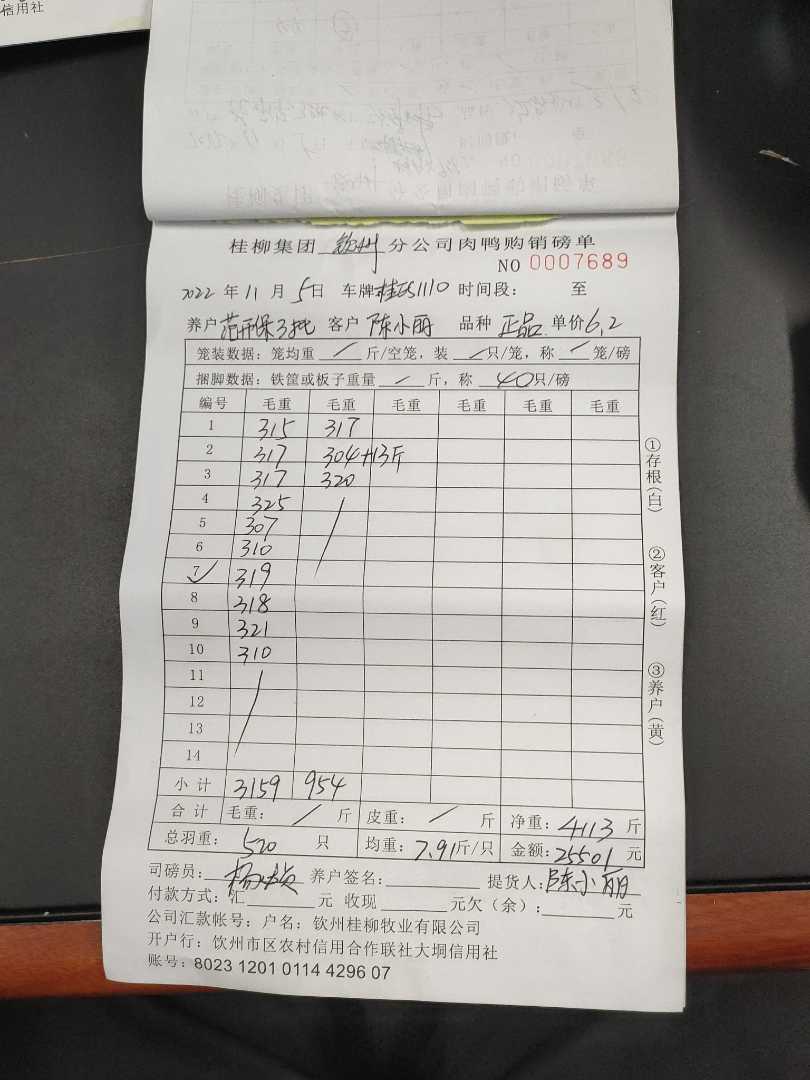 信用社
桂柳集团 钦州 分公司肉鸭购销磅单
NO 0007689
2022 年 11 月 5日 车牌 1110 时间段： 至
养户 客户 陈小丽 品种 正品 单价 6.2
笼装数据：笼均重 / 斤/空笼，装 / 只/笼，称 / 笼/磅
捆脚数据：铁筐或板子重量 / 斤，称 40只/磅
编号 毛重 毛重 毛重 毛重 毛重 毛重
1 315 317
2 317 304+13斤
3 317 320
4 325 /
5 307
6 310
7 ✓ 319
8 318
9 321
10 310
11 /
12
13
14
小计 3159 954
合计 毛重： / 斤 皮重： / 斤 净重：4113 斤
总羽重： 520 只 均重：7.91斤/只 金额：25501 元
司磅员： 养户签名： 提货人：陈小丽
付款方式：汇 元 收现 元欠（余）： 元
公司汇款帐号：户名：钦州桂柳牧业有限公司
开户行：钦州市区农村信用合作联社大垌信用社
账号：8023 1201 0114 4296 07
①存根（白）
②客户（红）
③养户（黄）